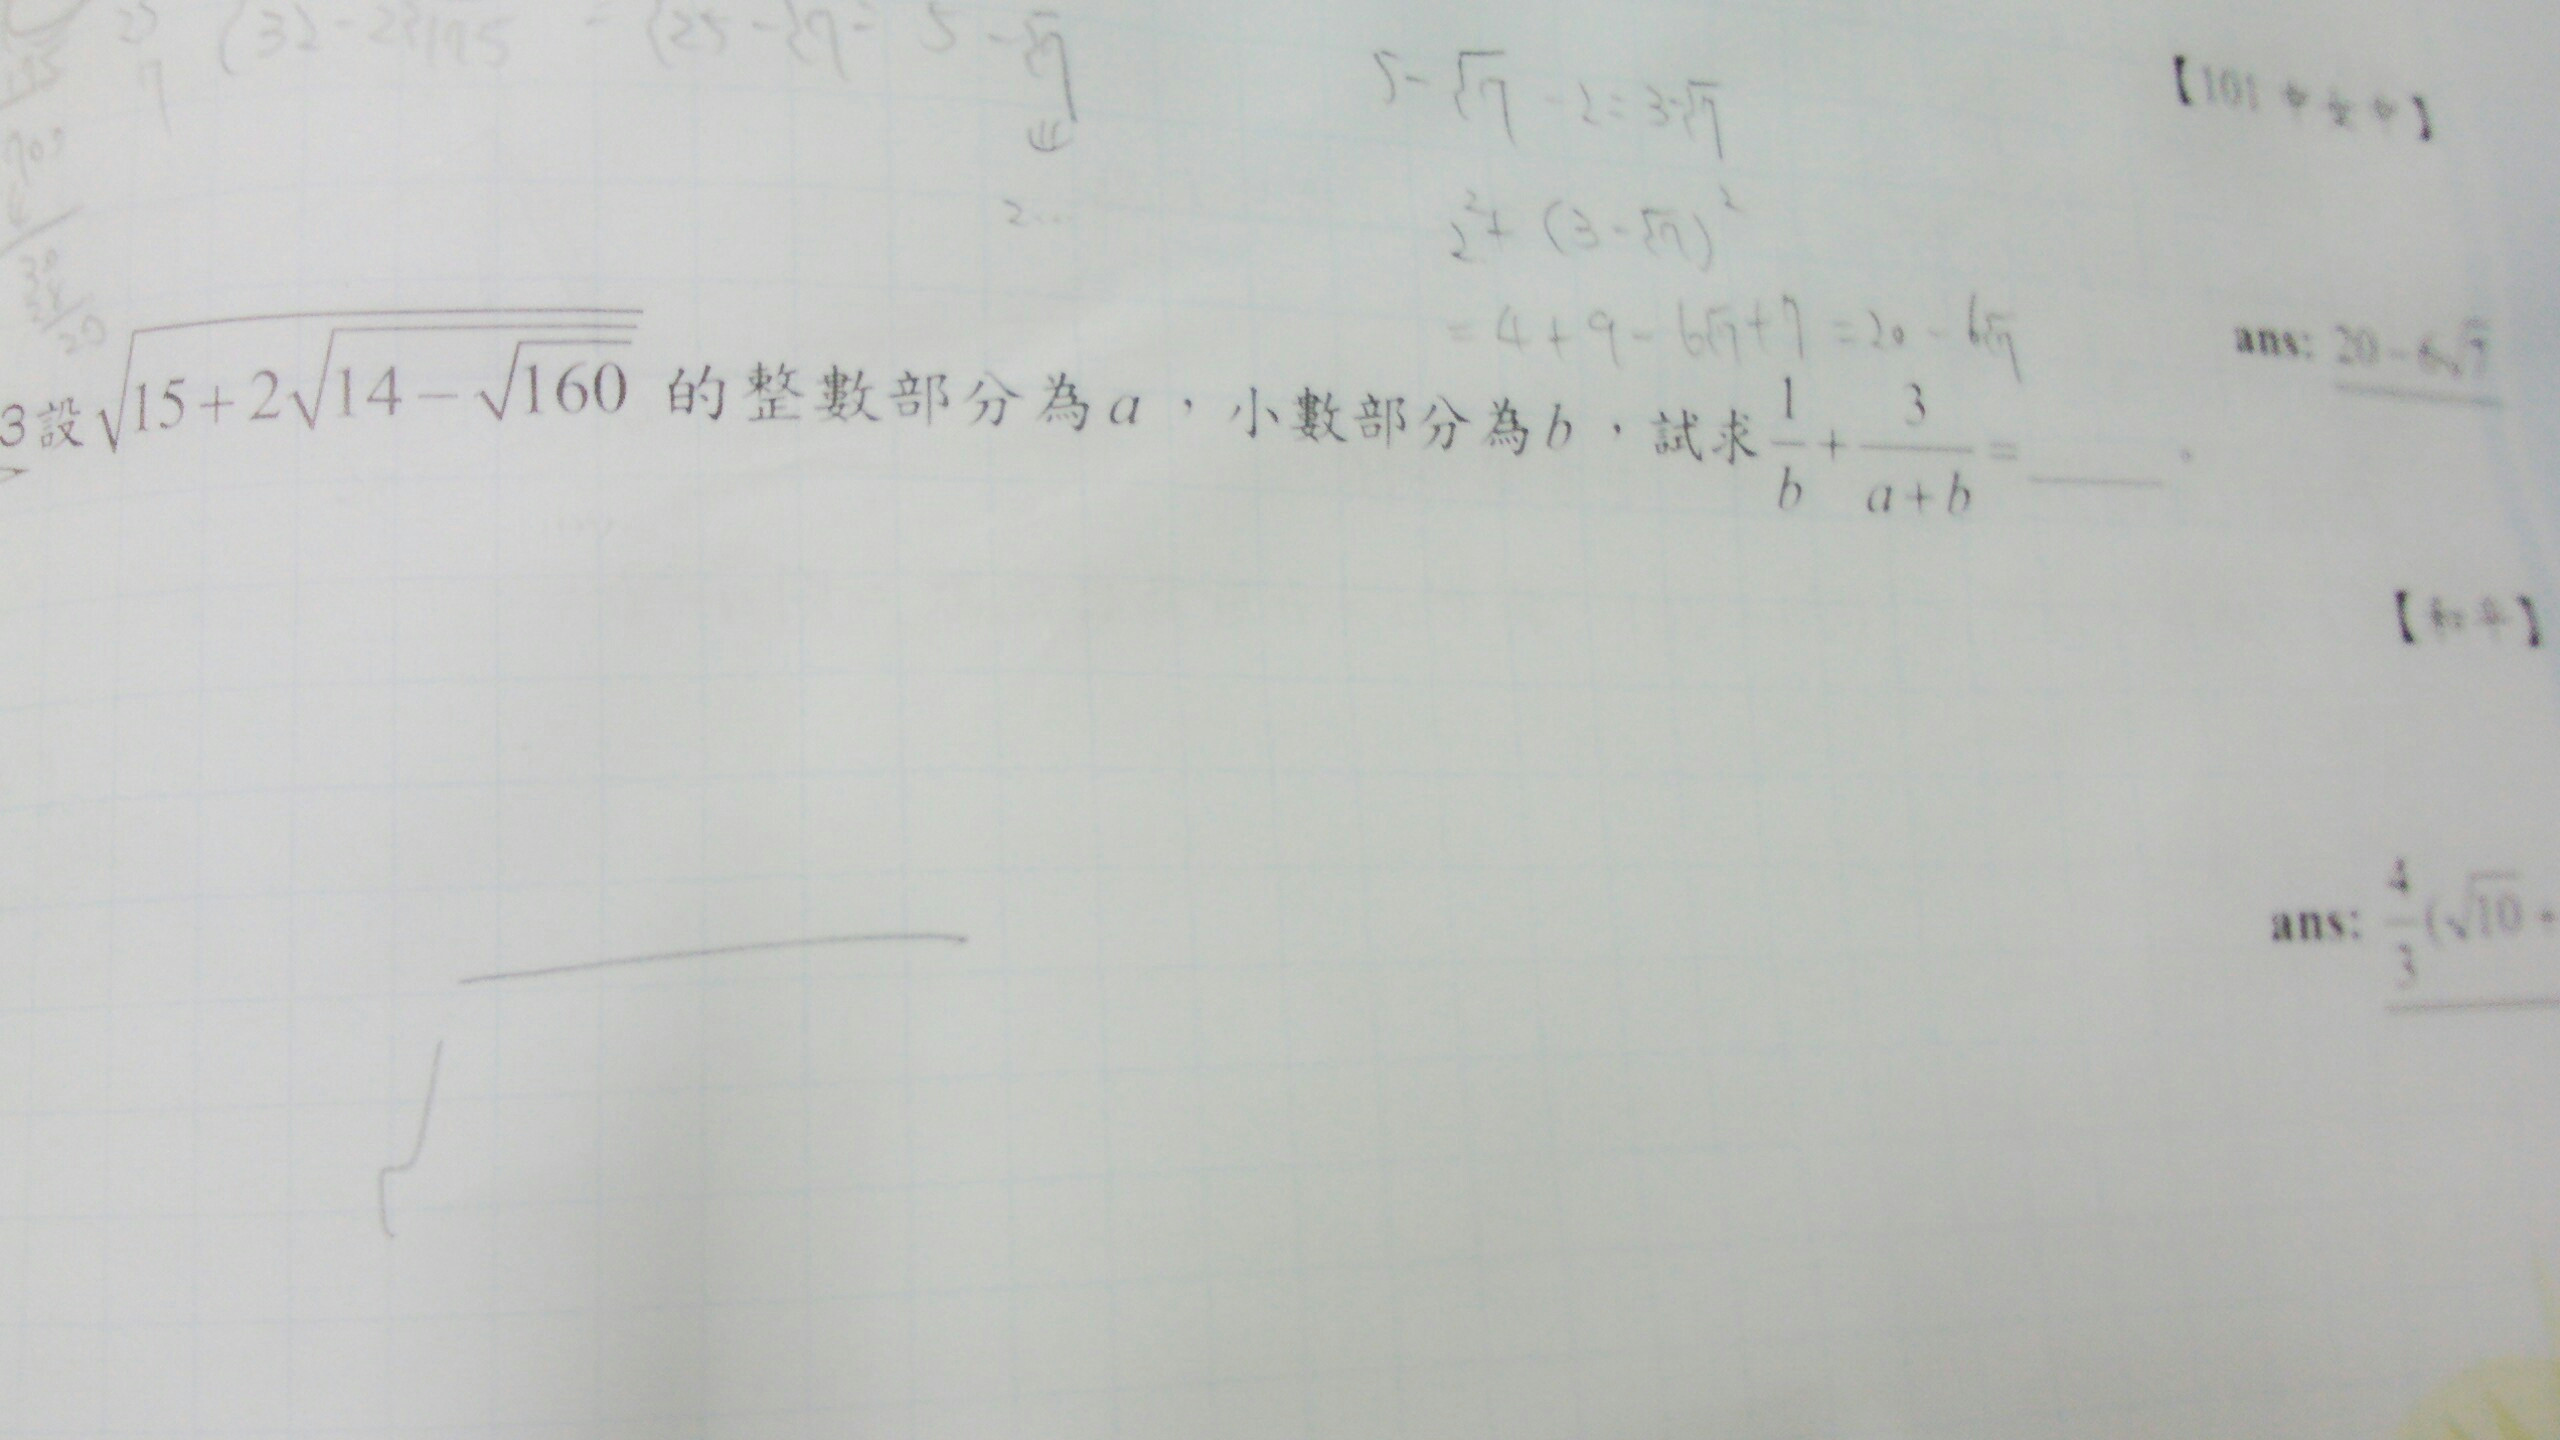 √(32-2√175) = √25 - √7 = 5 - √7
5 - √7 - 2 = 3 - √7
【101
2...
2² + (3 - √7)²
= 4 + 9 - 6√7 + 7 = 20 - 6√7
ans: 20 - 6√7
3 設 √(15+2√(14-√160)) 的整數部分為 a ，小數部分為 b ，試求 1/b + 3/(a+b) = ____ 。
【和平】
ans: 4/3(√10